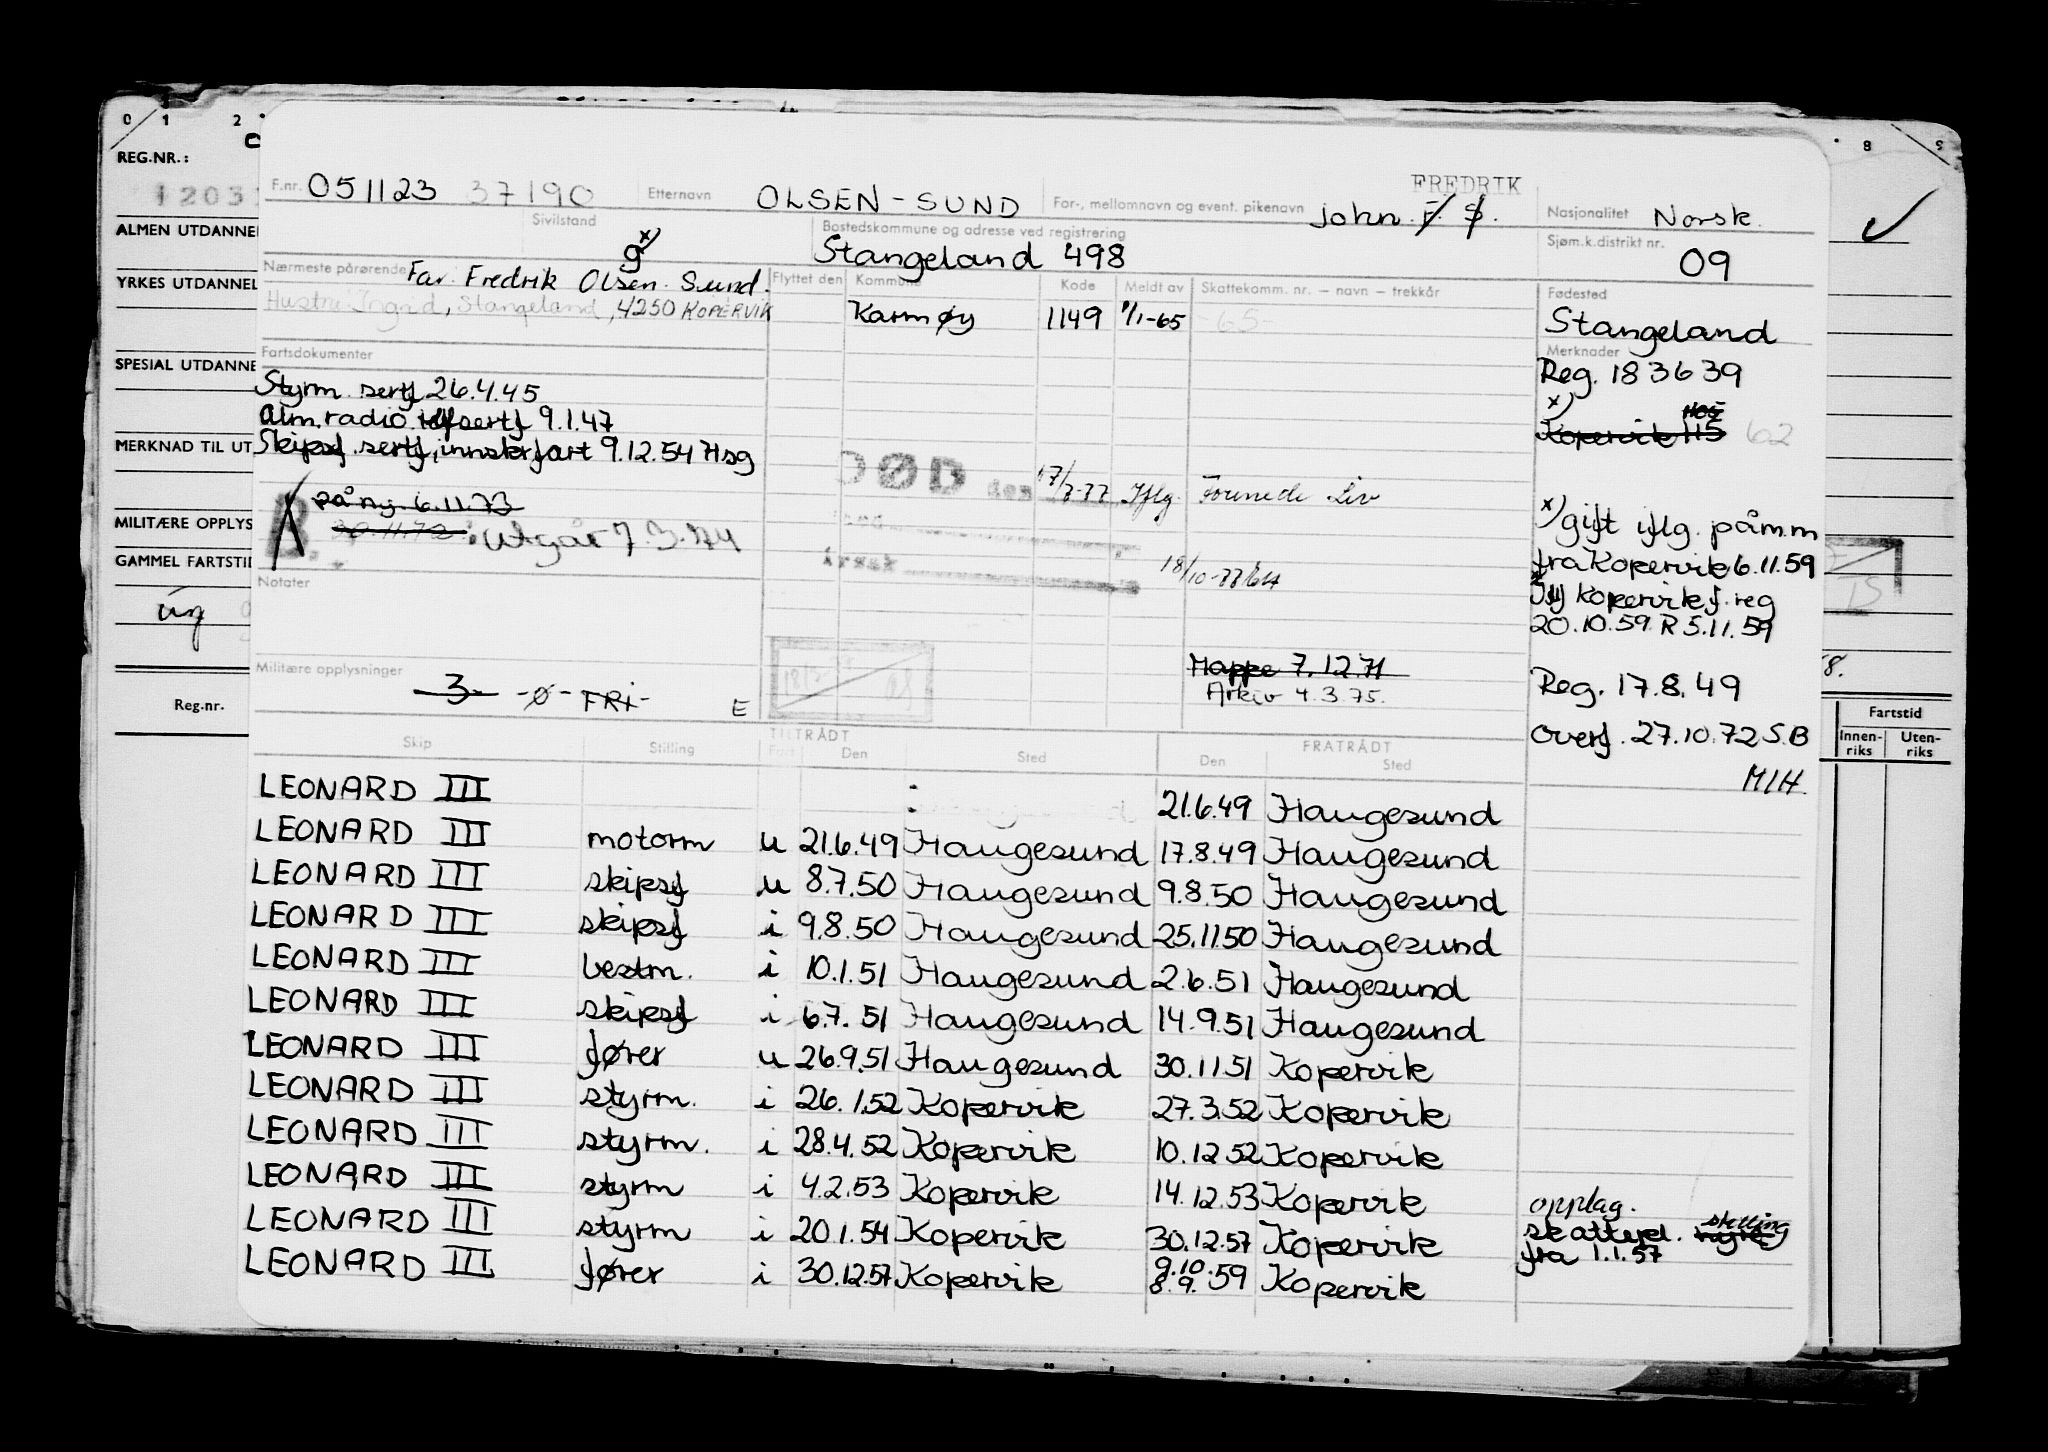 0 1 2 8 9
REG.NR.:
1203
F.nr. 051123 37190 Etternavn OLSEN-SUND For-, mellomnavn og event. pikenavn John F. S. FREDRIK Nasjonalitet Norsk.
ALMEN UTDANNE
Sivilstand g x) Bostedskommune og adresse ved registrering Stangeland 498 Sjøm.k.distrikt nr. 09
YRKES UTDANNEL
Nærmeste pårørende Far. Fredrik Olsen-Sund. Flyttet den Kommune Kode Meldt av Skattekomm. nr. — navn — trekkår Fødested
Hustru: Ingrid, Stangeland, 4250 KOPERVIK Karmøy 1149 1/1-65 -65- Stangeland
SPESIAL UTDANNE
Fartsdokumenter
Styrm. sertf 26.4.45
Alm. radio tlf sertf 9.1.47
Skipsf. sertf, innskrfart 9.12.54 Hsg
Merknader
Reg. 183639
x)
Kopervik 115 62
MERKNAD TIL UT
B. på ny. 6.11.73
30.11.72 : Utgår 7.3.74
DØD den 17/8-77 Iflg. Fornede Liv
18/10-77
x) gift iflg. påm.m
fra Kopervik 6.11.59
Kopervik f. reg
20.10.59 R 5.11.59
MILITÆRE OPPLYS
GAMMEL FARTSTI
Notater
Mappe 7.12.71
Arkiv 4.3.75.
Reg. 17.8.49
Overf. 27.10.72 S.B
M/H.
Militære opplysninger 3 -0- FRI- E
Reg.nr.
Fartstid
Innen-riks Uten-riks
Skip Stilling TILTRÅDT Fart Den Sted FRATRÅDT Den Sted
LEONARD III 21.6.49 Haugesund
LEONARD III motorm u 21.6.49 Haugesund 17.8.49 Haugesund
LEONARD III skipsf u 8.7.50 Haugesund 9.8.50 Haugesund
LEONARD III skipsf i 9.8.50 Haugesund 25.11.50 Haugesund
LEONARD III bestm. i 10.1.51 Haugesund 2.6.51 Haugesund
LEONARD III skipsf i 6.7.51 Haugesund 14.9.51 Haugesund
LEONARD III fører u 26.9.51 Haugesund 30.11.51 Kopervik
LEONARD III styrm. i 26.1.52 Kopervik 27.3.52 Kopervik
LEONARD III styrm. i 28.4.52 Kopervik 10.12.52 Kopervik
LEONARD III styrm i 4.2.53 Kopervik 14.12.53 Kopervik opplag.
LEONARD III styrm i 20.1.54 Kopervik 30.12.57 Kopervik skattepl. stilling
fra 1.1.57
LEONARD III fører i 30.12.57 Kopervik 9.10. 8.9.59 Kopervik